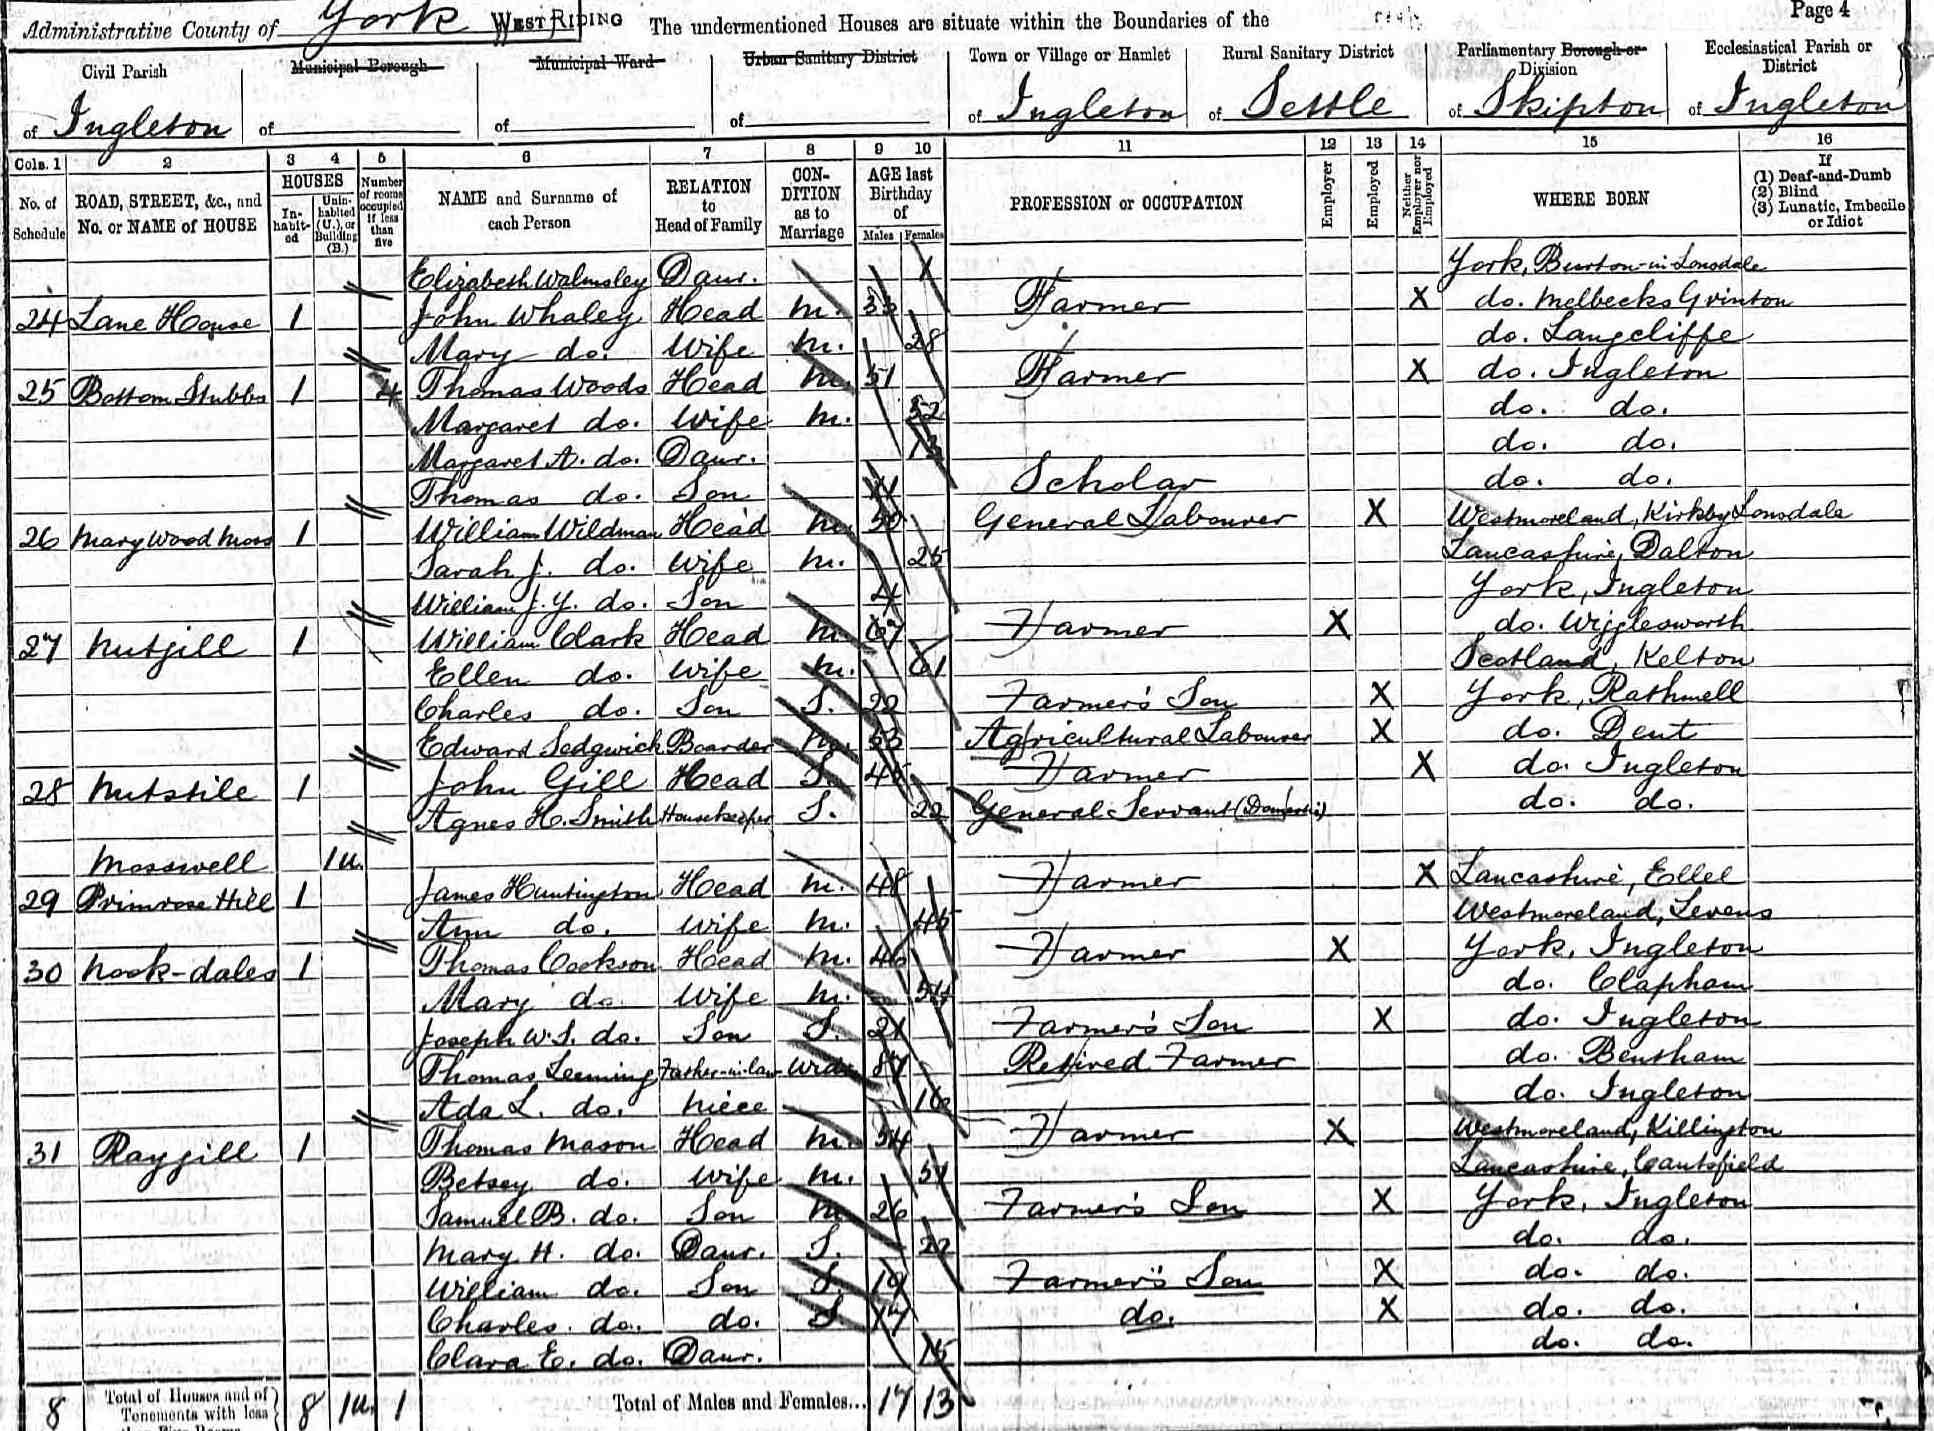 Administrative County of York WEST RIDING The undermentioned Houses are situate within the Boundaries of the Page 4
Civil Parish Municipal Borough Municipal Ward Urban Sanitary District Town or Village or Hamlet Rural Sanitary District Parliamentary Borough or Division Ecclesiastical Parish or District
of Ingleton of of of of Ingleton of Settle of Skipton of Ingleton
Cols. 1 2 3 4 5 6 7 8 9 10 11 12 13 14 15 16
No. of Schedule ROAD, STREET, &c., and No. or NAME of HOUSE HOUSES In-habit-ed Unin-habited (U.), or Building (B.) Number of rooms occupied if less than five NAME and Surname of each Person RELATION to Head of Family CON-DITION as to Marriage AGE last Birthday of Males Females PROFESSION or OCCUPATION Employer Employed Neither Employer nor Employed WHERE BORN If (1) Deaf-and-Dumb (2) Blind (3) Lunatic, Imbecile or Idiot
Elizabeth Walmsley Daur. 1 York, Burton-in-Lonsdale
24 Lane House 1 John Whaley Head M. 33 Farmer X do. Melbecks Grinton
Mary do. Wife M. 28 do. Langcliffe
25 Bottom Stubbs 1 4 Thomas Woods Head M. 51 Farmer X do. Ingleton
Margaret do. Wife M. 52 do. do.
Margaret A. do. Daur. 13 do. do.
Thomas do. Son 11 Scholar do. do.
26 Mary Wood Moss 1 William Wildman Head M. 50 General Labourer X Westmoreland, Kirkby Lonsdale
Sarah J. do. Wife M. 25 Lancashire, Dalton
William J. Y. do. Son 4 York, Ingleton
27 Nutgill 1 William Clark Head M. 67 Farmer X do. Wigglesworth
Ellen do. Wife M. 61 Scotland, Kelton
Charles do. Son S. 22 Farmer's Son X York, Rathmell
Edward Sedgwick Boarder 53 Agricultural Labourer X do. Dent
28 Nutstile 1 John Gill Head S. 45 Farmer X do. Ingleton
Agnes H. Smith Housekeeper S. 22 General Servant (Domestic) do. do.
Mosswell 1u.
29 Primrose Hill 1 James Huntington Head M. 48 Farmer X Lancashire, Ellel
Ann do. Wife M. 45 Westmoreland, Levens
30 Nook-dales 1 Thomas Cookson Head M. 46 Farmer X York, Ingleton
Mary do. Wife M. 54 do. Clapham
Joseph W. S. do. Son S. 21 Farmer's Son X do. Ingleton
Thomas Leeming Father-in-law Widr. 87 Retired Farmer do. Bentham
Ada L. do. Niece 16 do. Ingleton
31 Raygill 1 Thomas Mason Head M. 54 Farmer X Westmoreland, Killington
Betsey do. Wife M. 51 Lancashire, Cantsfield
Samuel B. do. Son M. 26 Farmer's Son X York, Ingleton
Mary H. do. Daur. S. 22 do. do.
William do. Son S. 19 Farmer's Son X do. do.
Charles do. do. S 17 do. X do. do.
Clara E. do. Daur. 15 do. do.
8 Total of Houses and of Tenements with less 8 1u. 1 Total of Males and Females... 17 13